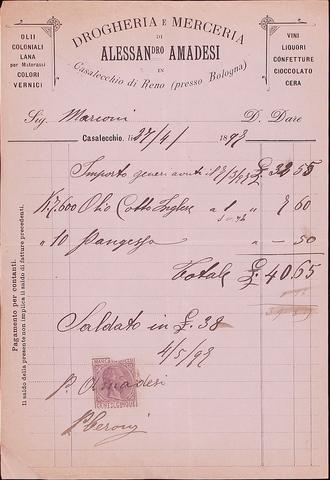 DROGHERIA E MERCERIA
DI
ALESSANDRO AMADESI
IN
Casalecchio di Reno (presso Bologna)
OLII
COLONIALI
LANA
per Materassi
COLORI
VERNICI
VINI
LIQUORI
CONFETTURE
CIOCCOLATO
CERA
Sig. Marconi D. Dare
Casalecchio, li 27/4/ 1893
Importo generi avuti il £ 32 55
K. 7,600 Olio Cotto Inglese a 1 " 7 60
" 10 " - 50
Totale £ 40.65
Saldato in £. 38
4/5/93
p. Amadesi
Pagamento per contanti.
Il saldo della presente non implica il saldo di fatture precedenti.